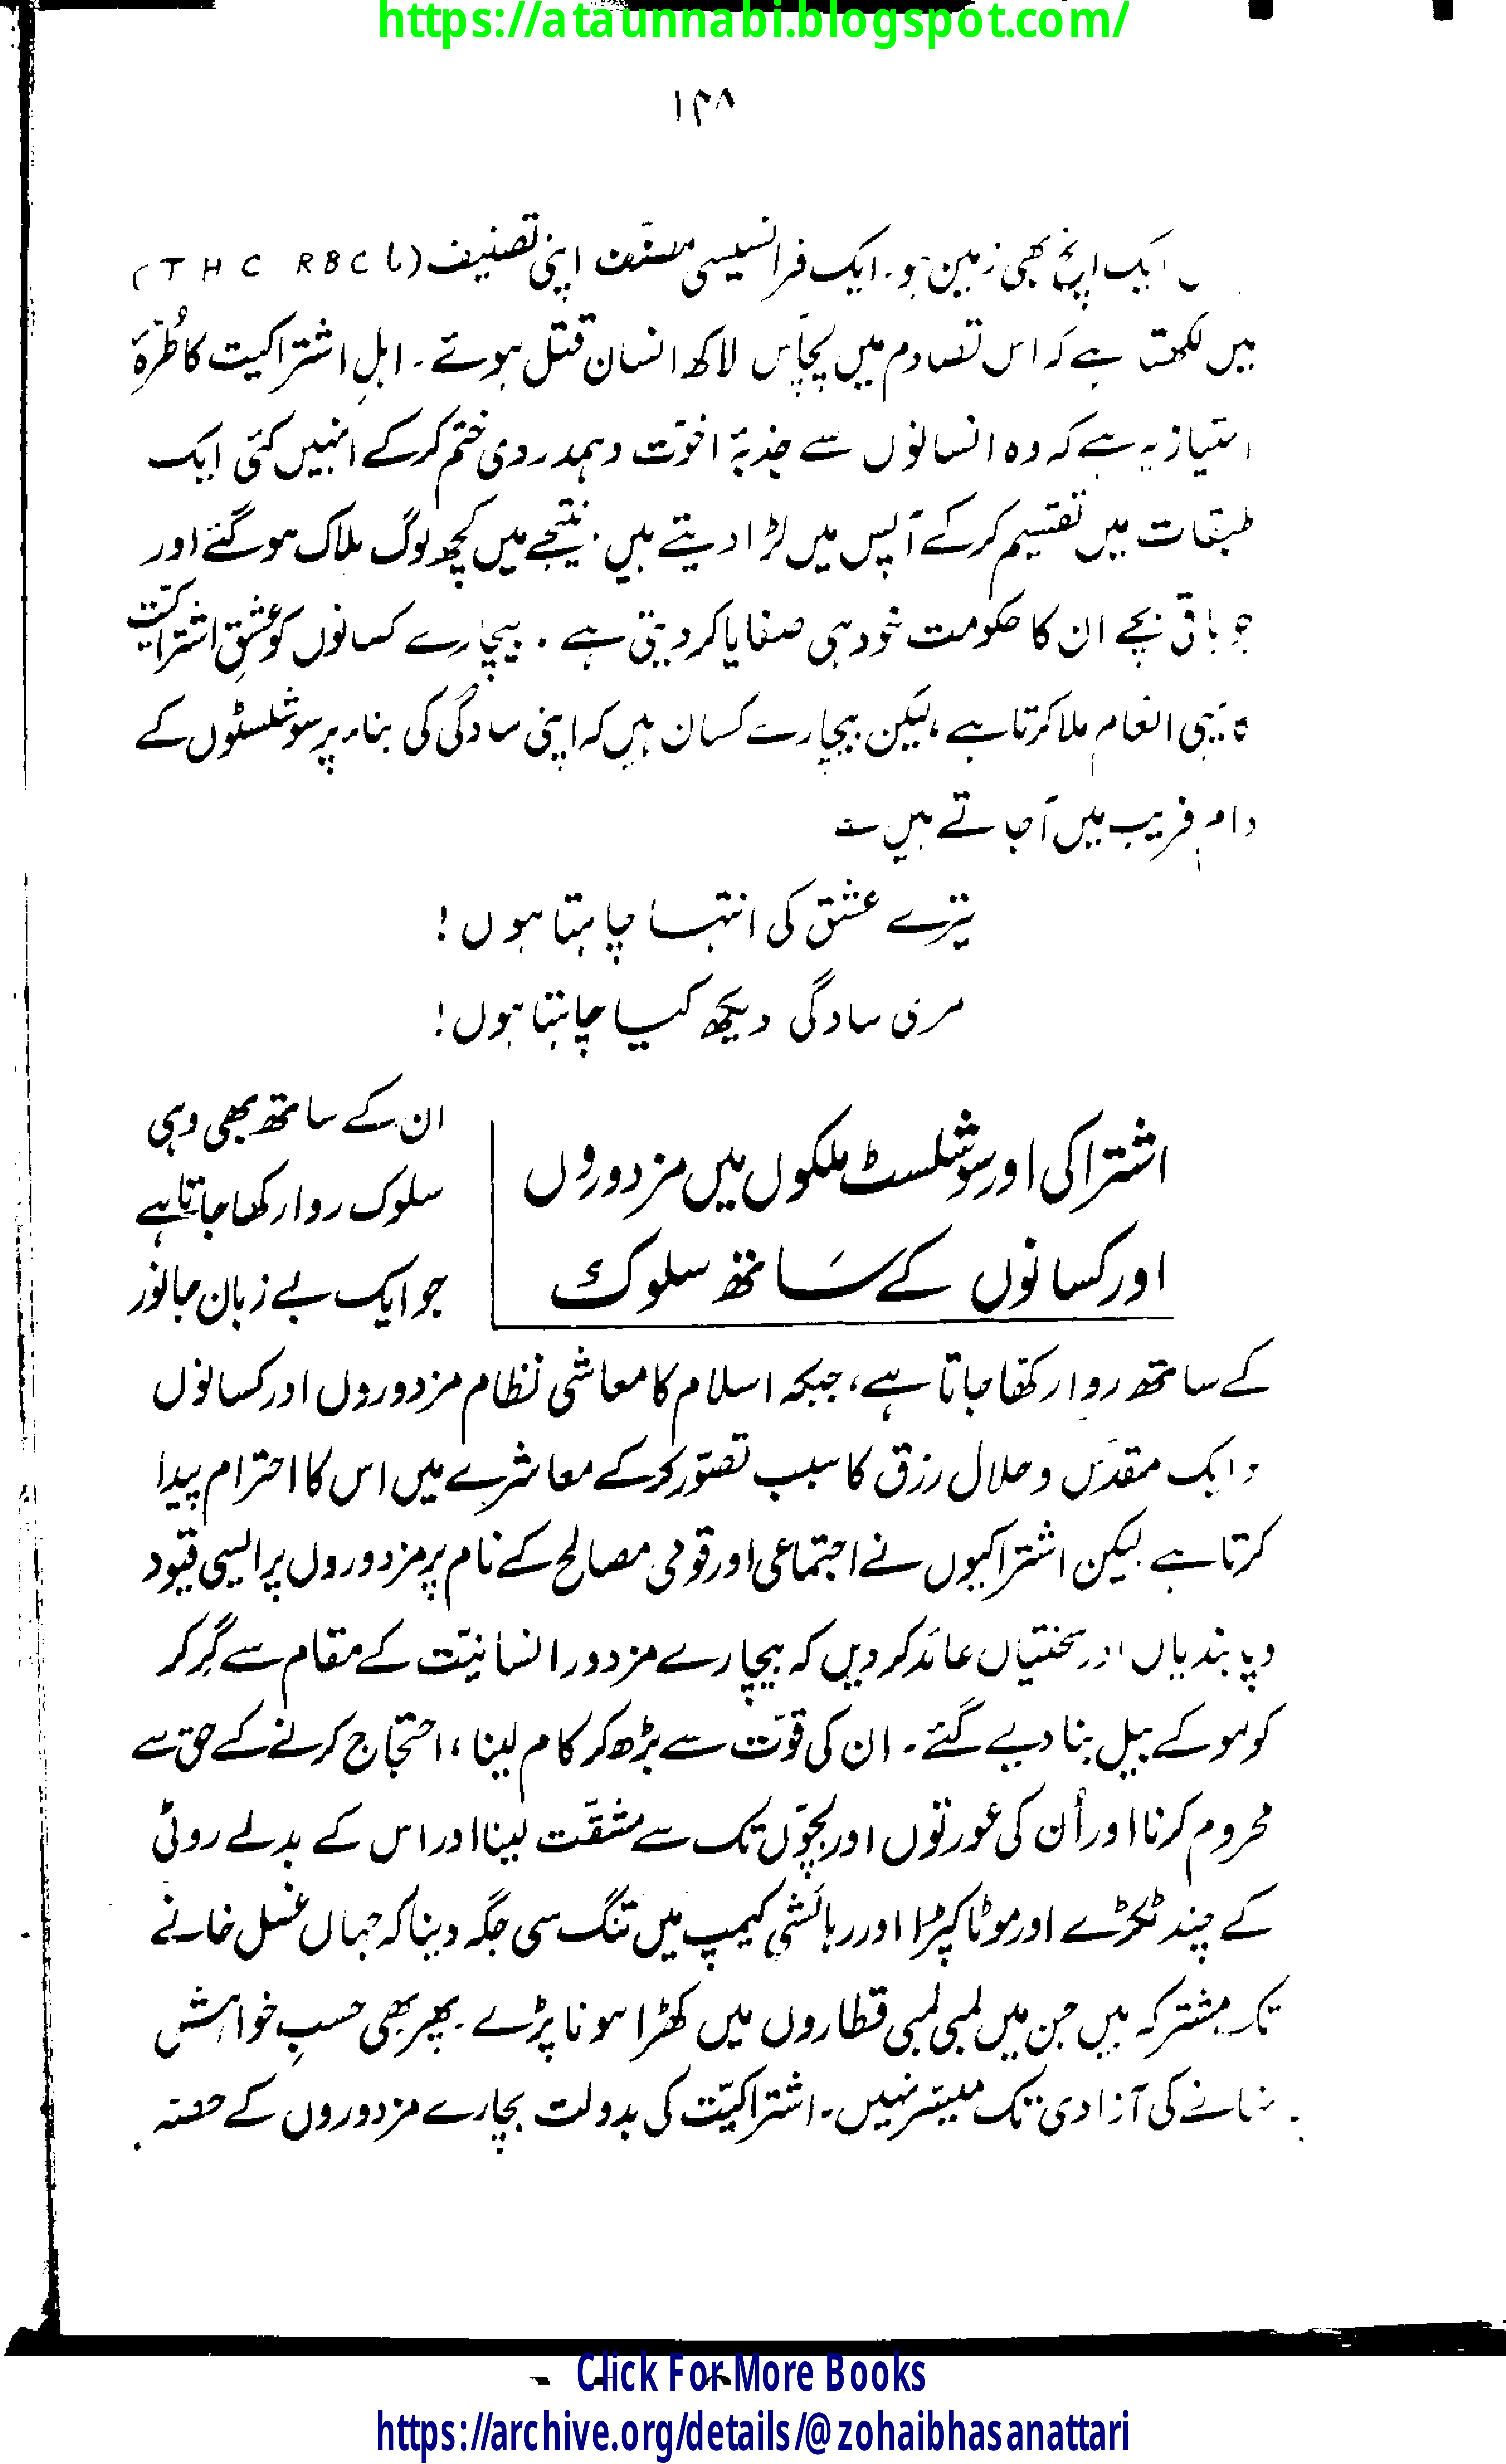 https://ataunnabi.blogspot.com/
۱۴۸
ایک اپنچ بھی زمین ہو۔ ایک فرانسیسی مصنف اپنی تصنیف (THC RBCL)
میں لکھتا ہے کہ اس تصادم میں پچاس لاکھ انسان قتل ہوئے۔ اہلِ اشتراکیت کا طُرّۂ
امتیاز یہ ہے کہ وہ انسانوں سے جذبۂ اخوّت وہمدردی ختم کرکے انہیں کئی ایک
طبقات میں تقسیم کرکے آپس میں لڑا دیتے ہیں۔ نتیجے میں کچھ لوگ ہلاک ہوگئے اور
جو باقی بچے ان کا حکومت خود ہی صفایا کر دیتی ہے۔ بیچارے کسانوں کو عشقِ اشتراکیّت
کا یہی انعام ملا کرتا ہے، لیکن بیچارے کسان ہیں کہ اپنی سادگی کی بناء پر سوشلسٹوں کے
دامِ فریب میں آجاتے ہیں ؎
تیرے عشق کی انتہا چاہتا ہوں!
مری سادگی دیکھ کیا چاہتا ہوں!
اشتراکی اور سوشلسٹ ملکوں میں مزدوروں
اور کسانوں کے سَاتھ سلوک
ان کے ساتھ بھی وہی
سلوک روا رکھا جاتا ہے
جو ایک بے زبان جانور
کے ساتھ روا رکھا جاتا ہے، جبکہ اسلام کا معاشی نظام مزدوروں اور کسانوں
کو ایک مقدّس و حلال رزق کا سبب تصوّر کرکے معاشرے میں اس کا احترام پیدا
کرتا ہے لیکن اشتراکیوں نے اجتماعی اور قومی مصالح کے نام پر مزدوروں پر ایسی قیود
وپابندیاں اور سختیاں عائد کر دیں کہ بیچارے مزدور انسانیّت کے مقام سے گِر کر
کولہو کے بیل بنا دیے گئے۔ ان کی قوّت سے بڑھ کر کام لینا، احتجاج کرنے کے حق سے
محروم کرنا اور اُن کی عورتوں اور بچّوں تک سے مشقّت لینا اور اس کے بدلے روٹی
کے چند ٹکڑے اور موٹا کپڑا اور رہائشی کیمپ میں تنگ سی جگہ دینا کہ جہاں غسل خانے
تک مشترکہ ہیں جن میں لمبی لمبی قطاروں میں کھڑا ہونا پڑے۔ پھر بھی حسبِ خواہش
نہانے کی آزادی تک میسّر نہیں۔ اشتراکیّت کی بدولت بچارے مزدوروں کے حصّہ
Click For More Books
https://archive.org/details/@zohaibhasanattari